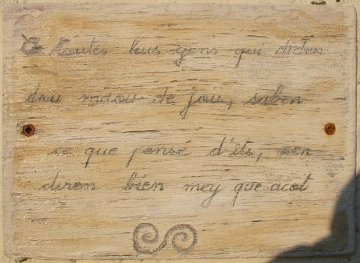 toutes leus gens que diden
dau miau de jou, saben
ce que pensè d'ets, n'en
diren bien mey que acot